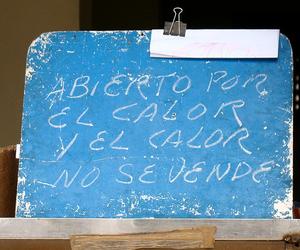 ABIERTO POR
EL CALOR
Y EL CALOR
NO SE VENDE